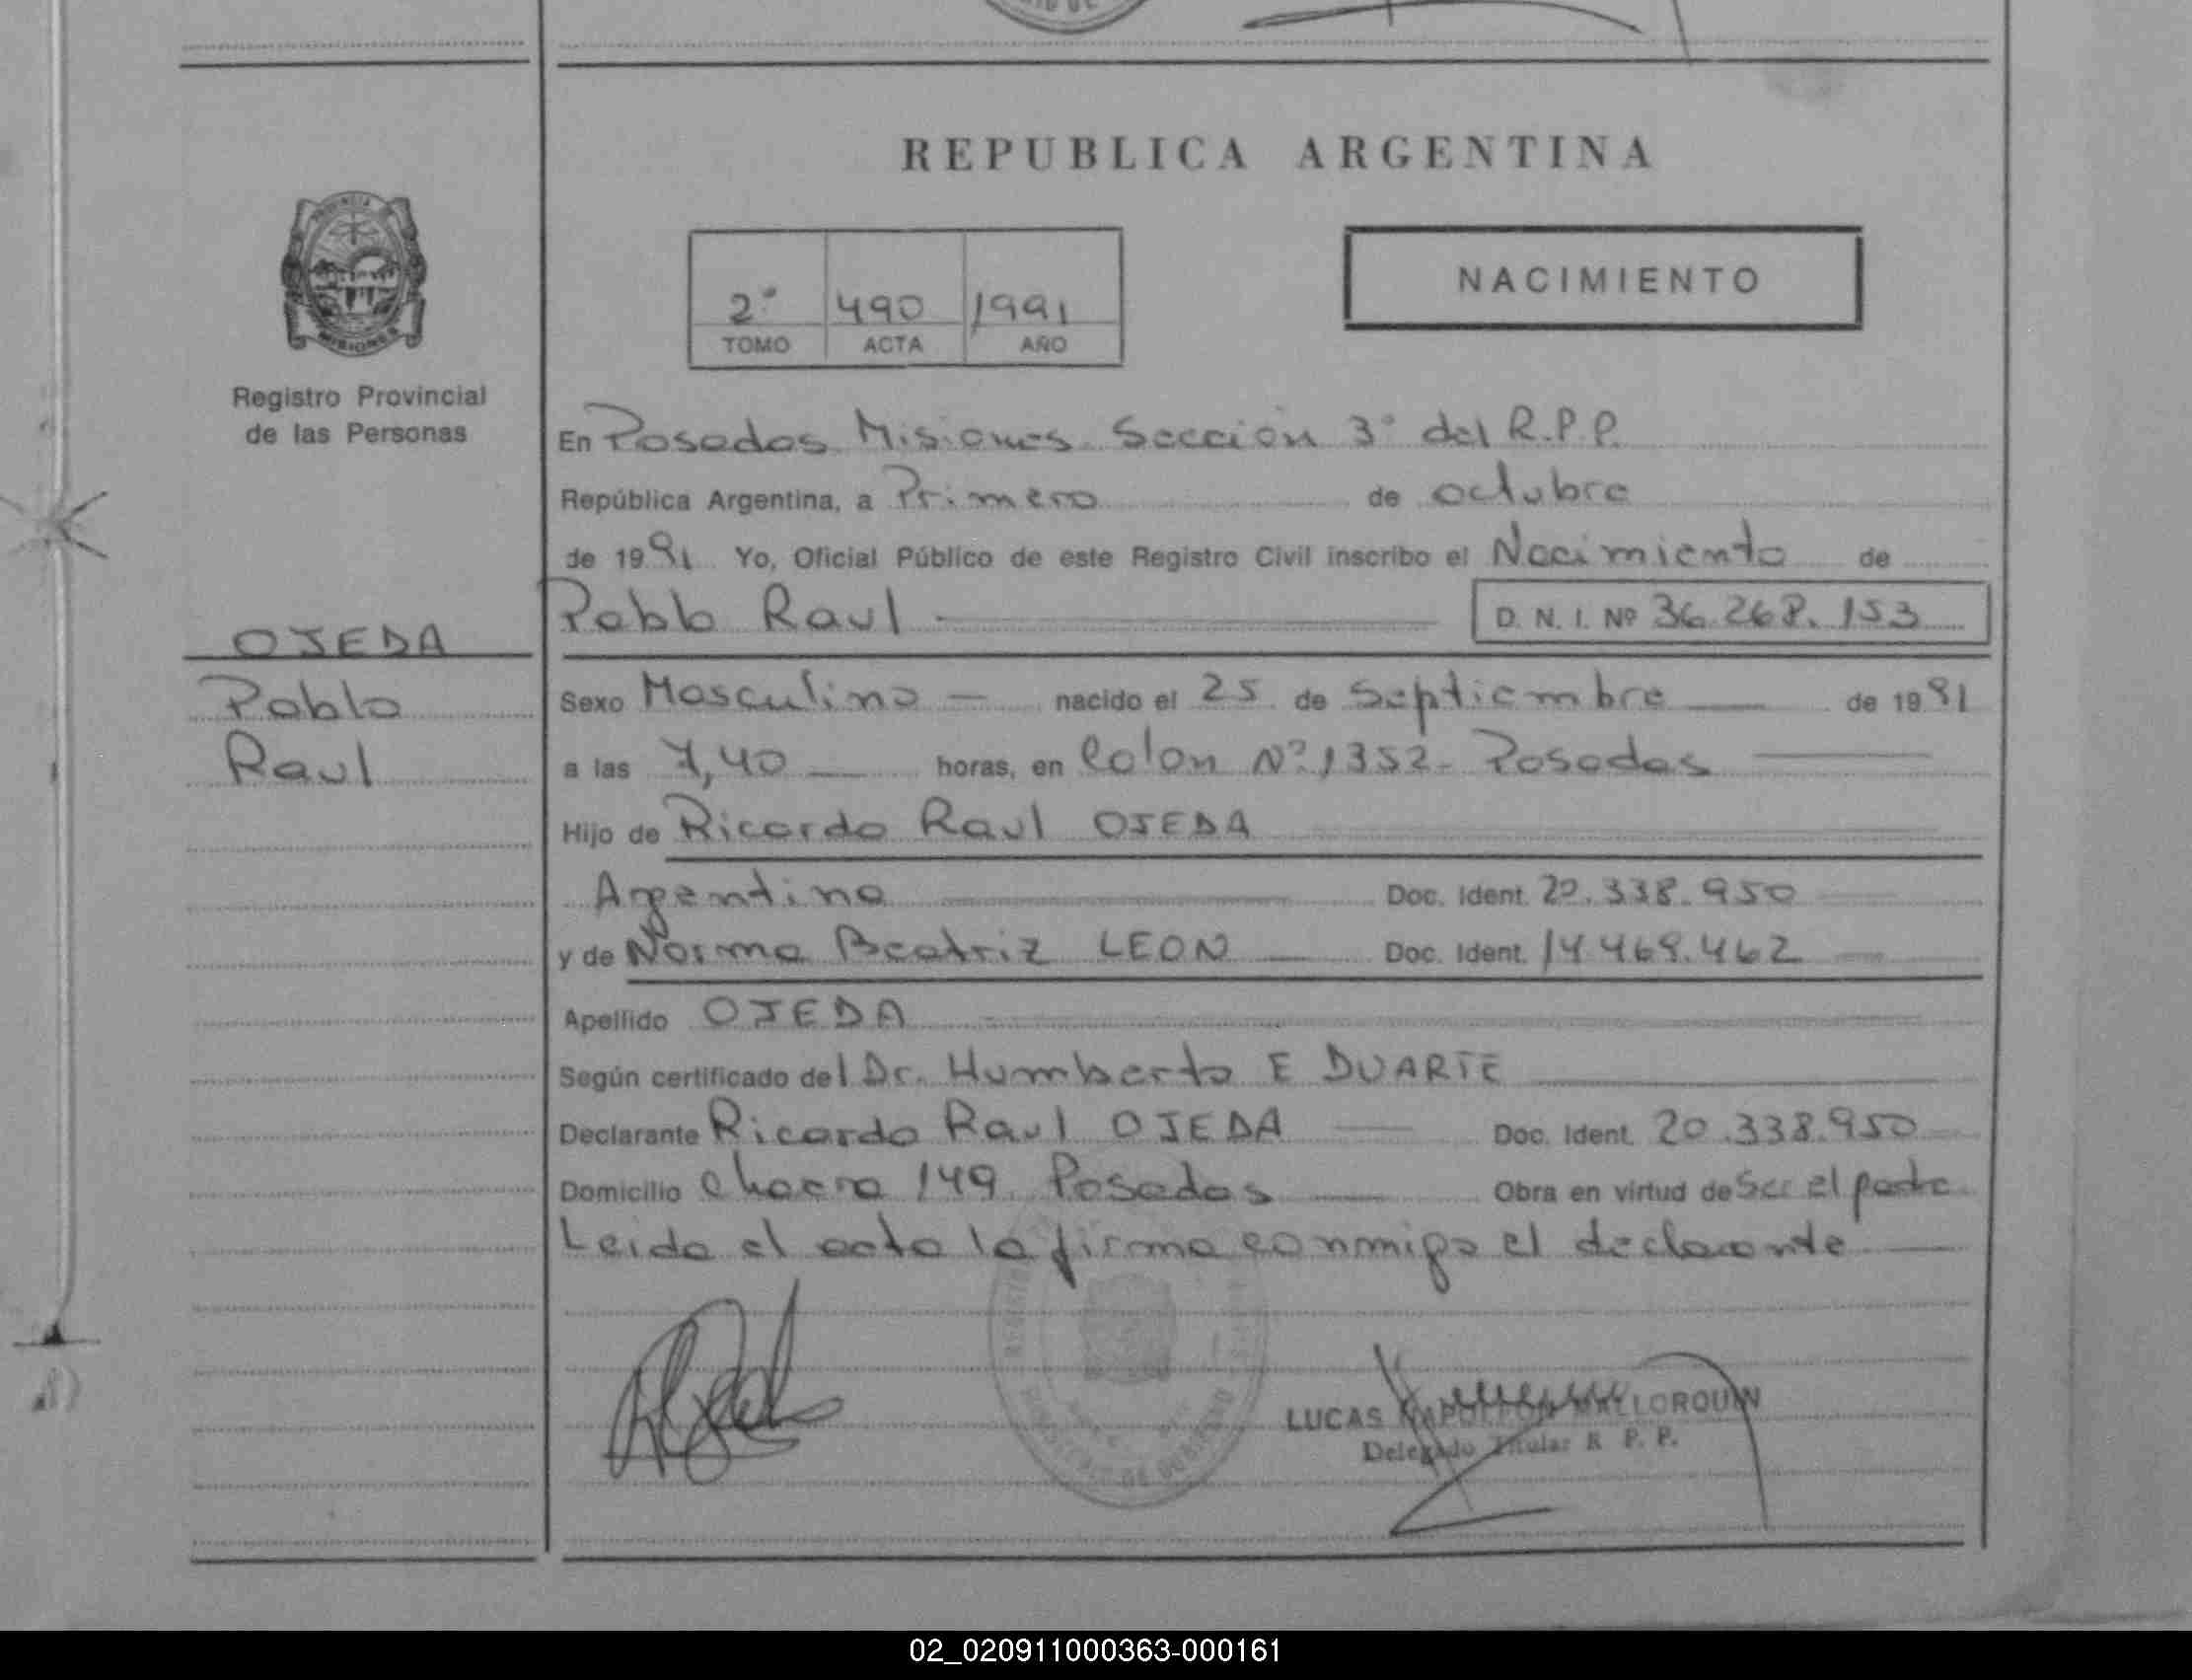 REPUBLICA ARGENTINA
PROVINCIA
MISIONES
Registro Provincial
de las Personas
OJEDA
Pablo
Raul
2°
490
1991
TOMO
ACTA
AÑO
NACIMIENTO
En Posadas Misiones Sección 3° del R.P.P.
República Argentina, a Primero de octubre
de 1991 Yo, Oficial Público de este Registro Civil inscribo el Nacimiento de
Pablo Raul
D. N. I. Nº 36.268.153
Sexo Masculino — nacido el 25 de Septiembre — de 1991
a las 7,40 — horas, en Colon Nº 1352 - Posadas —
Hijo de Ricardo Raul OJEDA
Argentina — Doc. Ident. 20.338.950
y de Norma Beatriz LEON — Doc. Ident. 14.469.462
Apellido OJEDA
Según certificado del Dr. Humberto E DUARTE
Declarante Ricardo Raul OJEDA — Doc. Ident. 20.338.950
Domicilio Chacra 149 Posadas — Obra en virtud de Ser el padre
Leida el acta la firma conmigo el declarante —
MINISTERIO DE GOBIERNO
LUCAS NAPOLEON MALLORQUIN
Delegado Titular R. P. P.
02_020911000363-000161